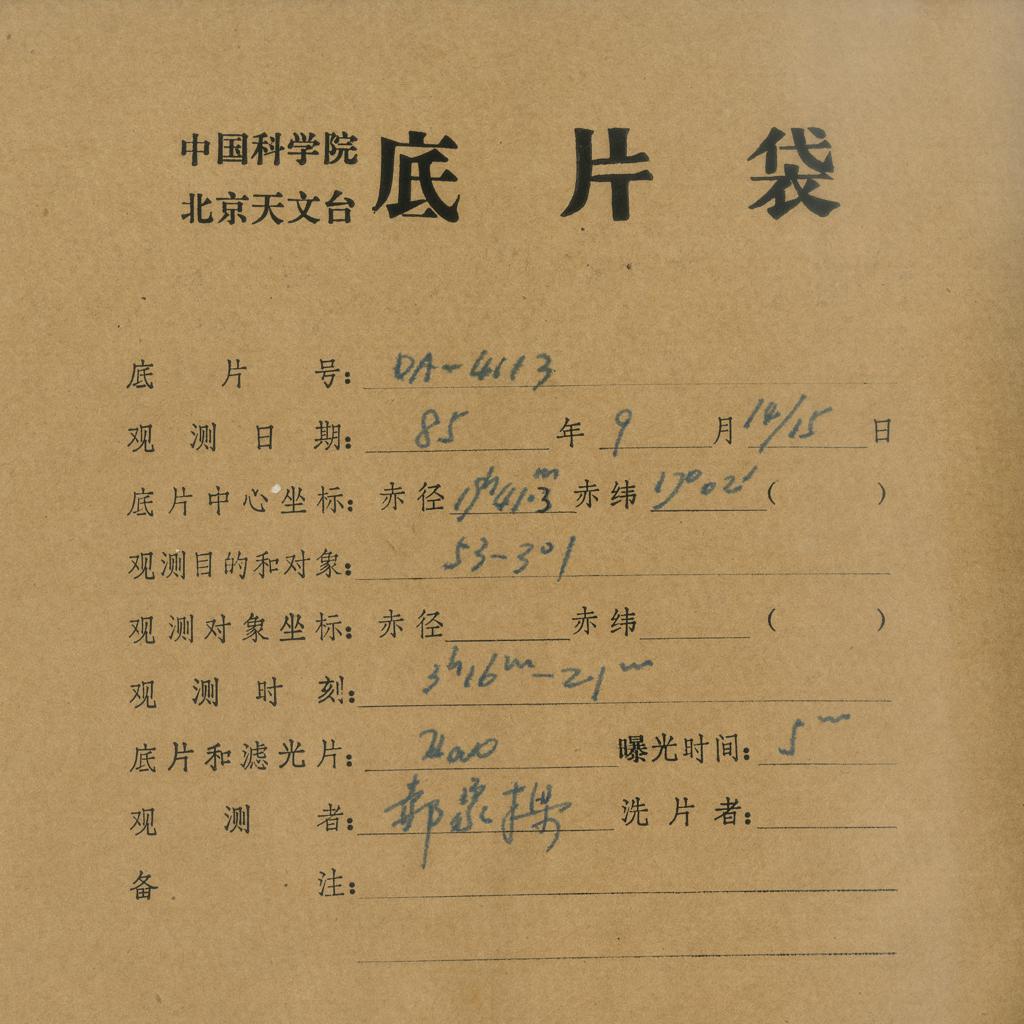 中国科学院
北京天文台
底片袋
底片号: DA-4113
观测日期: 85年9月14/15日
底片中心坐标: 赤径1ʰ41.3ᵐ赤纬17°02′( )
观测目的和对象: 53-301
观测对象坐标: 赤径 赤纬 ( )
观测时刻: 3ʰ16ᵐ-21ᵐ
底片和滤光片: 曝光时间: 5ᵐ
观测者: 洗片者:
备注: